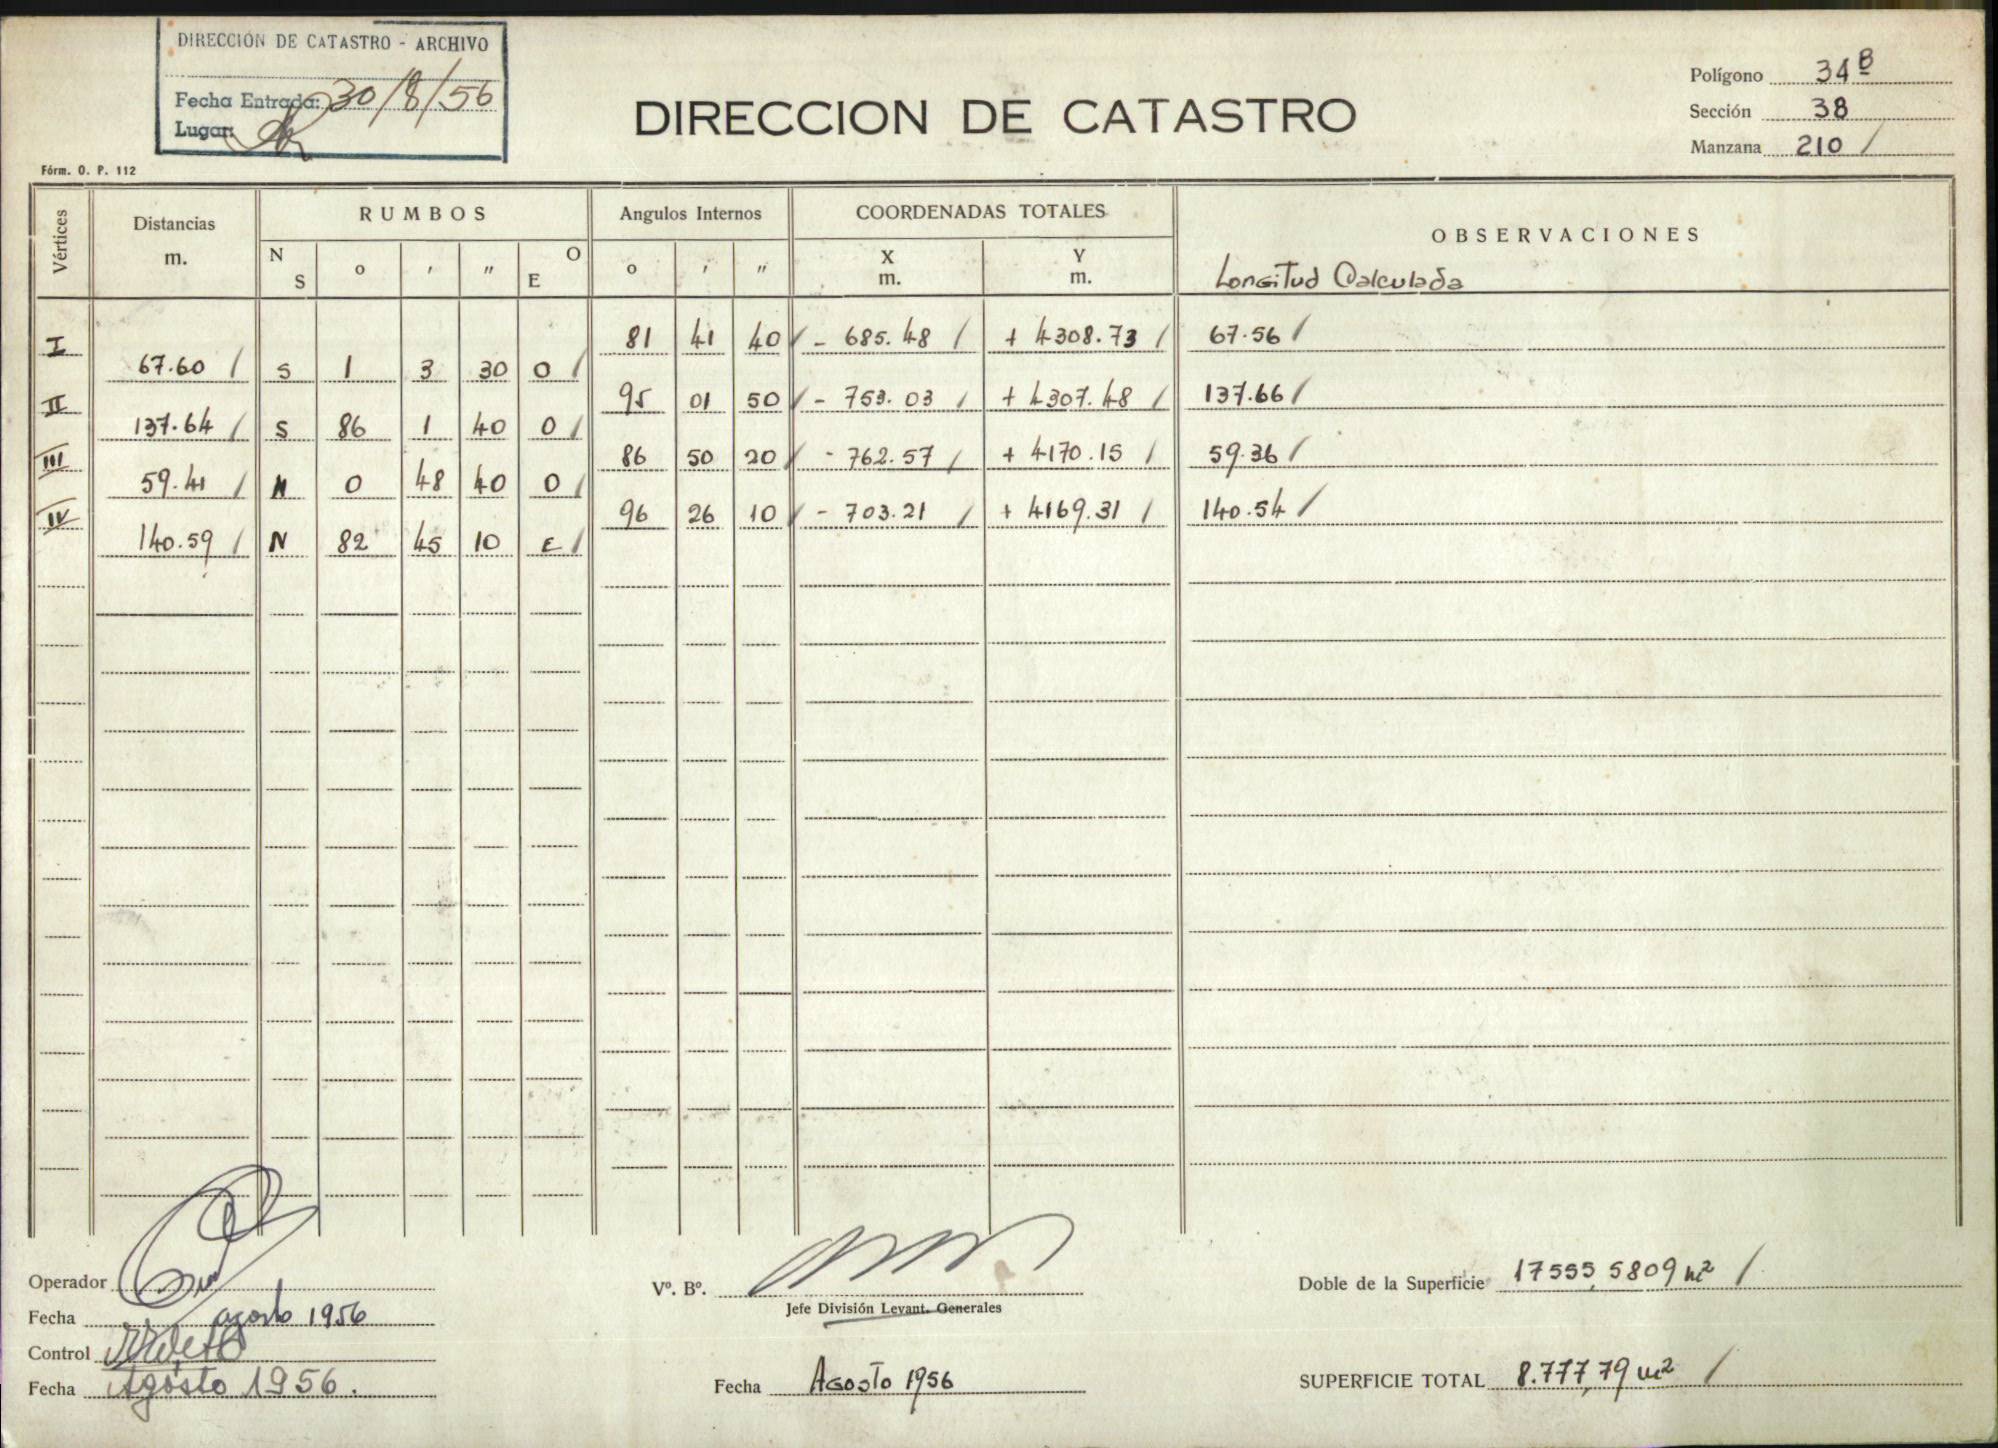 DIRECCIÓN DE CATASTRO - ARCHIVO
Fecha Entrada: 30/8/56
Lugar:
Fórm. O. P. 112
DIRECCION DE CATASTRO
Polígono 34 B
Sección 38
Manzana 210 /
Vértices
Distancias
m.
RUMBOS
N S ° ' " O E
Angulos Internos
° ' "
COORDENADAS TOTALES
X m. Y m.
OBSERVACIONES
Longitud Calculada
I 81 41 40 / - 685.48 / + 4308.73 / 67.56 /
67.60 / S 1 3 30 O /
II 95 01 50 / - 753.03 / + 4307.48 / 137.66 /
137.64 / S 86 1 40 O /
III 86 50 20 / - 762.57 / + 4170.15 / 59.36 /
59.41 / N 0 48 40 O /
IV 96 26 10 / - 703.21 / + 4169.31 / 140.54 /
140.59 / N 82 45 10 E /
Operador
Fecha agosto 1956
Control
Fecha Agosto 1956.
Vº. Bº.
Jefe División Levant. Generales
Fecha Agosto 1956
Doble de la Superficie 17555,5809 m² /
SUPERFICIE TOTAL 8.777,79 m² /